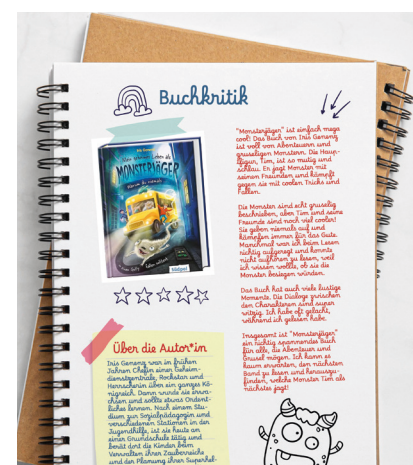 Buchkritik
"Monsterjäger" ist einfach mega
cool! Das Buch von Iris Genenz
ist voll von Abenteuern und
gruseligen Monstern. Die Haup-
figur, Tim, ist so mutig und
schlau. Er jagt Monster mit
seinen Freunden und kämpft
gegen sie mit coolen Tricks und
Fallen.
Die Monster sind echt gruselig
beschrieben, aber Tim und seine
Freunde sind noch viel cooler!
Sie geben niemals auf und
kämpfen immer für das Gute.
Manchmal war ich beim Lesen
richtig aufgeregt und konnte
nicht aufhören zu lesen, weil
ich wissen wollte, ob sie die
Monster besiegen würden.
Das Buch hat auch viele lustige
Momente. Die Dialoge zwischen
den Charakteren sind super
witzig. Ich habe oft gelacht,
während ich gelesen habe.
Insgesamt ist "Monsterjäger"
ein richtig spannendes Buch
für alle, die Abenteuer und
Grusel mögen. Ich kann es
kaum erwarten, den nächsten
Band zu lesen und herauszu-
finden, welche Monster Tim als
nächstes jagt!
Mein Leben als
MONSTERJÄGER
Südpol
Über die Autor*in
Iris Genenz war in frühen
Jahren Chefin eines Geheim-
dienstzentrale, Rockstar und
Herrscherin über ein ganzes Kö-
nigreich. Dann wurde sie erwa-
chsen und sollte etwas Ordent-
liches lernen. Nach einem Stu-
dium zur Sozialpädagogin und
verschiedenen Stationen in der
Jugendhilfe, ist sie heute an
einer Grundschule tätig und
berät dort die Kinder beim
Verwalten ihrer Zauberreiche
und der Planung ihrer Superhel-